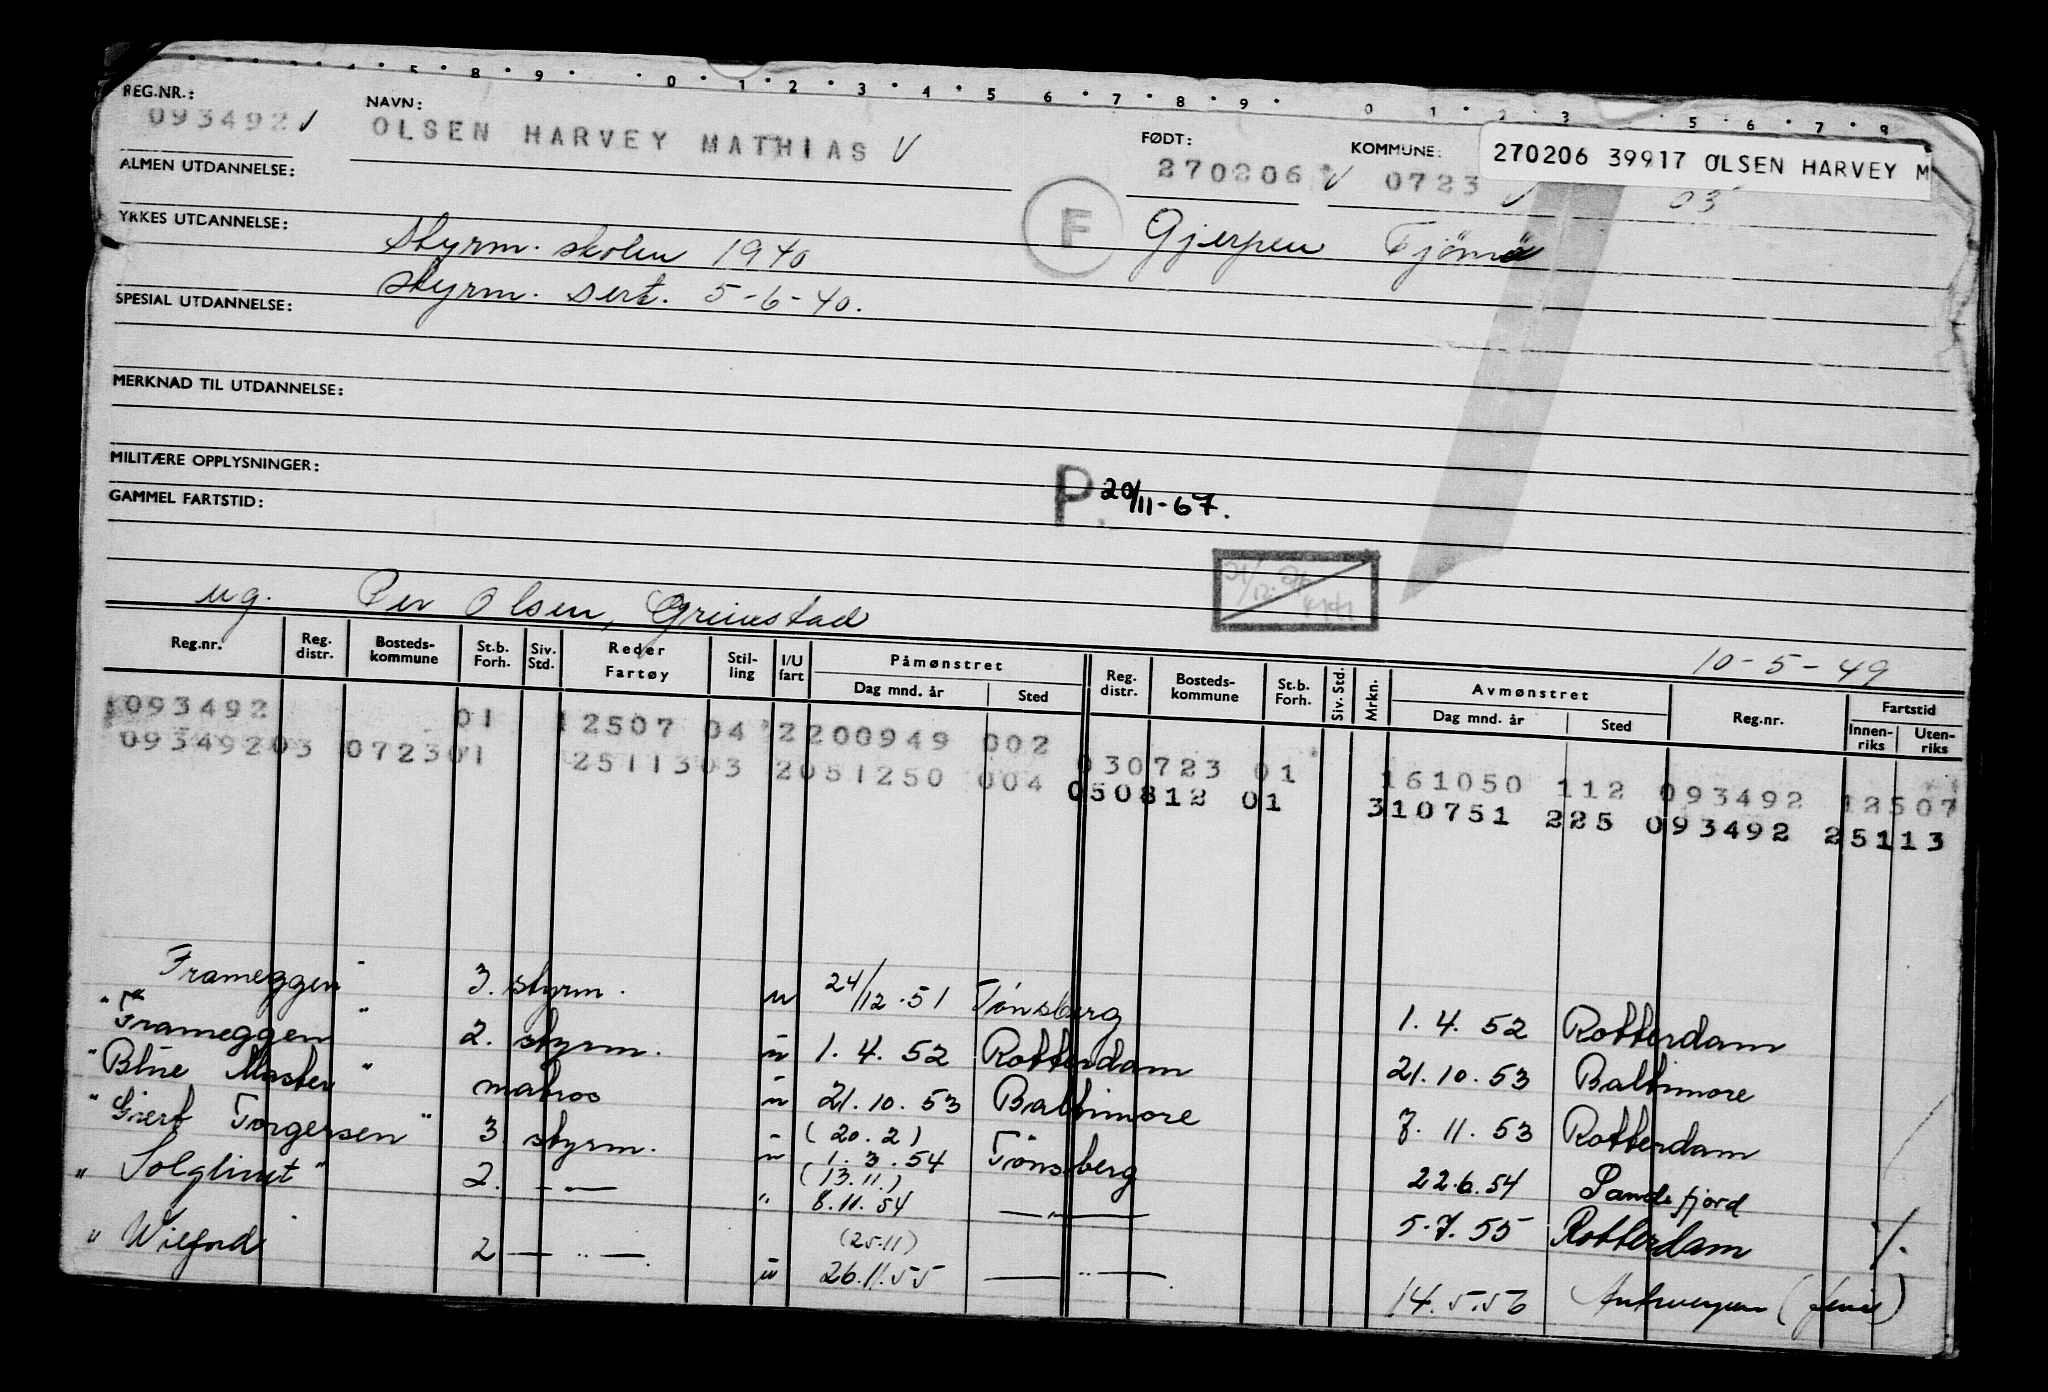 4 . 5 . 8 . 9 . . 0 . 1 . 2 . 3 . 4 . 5 6 . 7 . 8 . 9 . 0 1 . 2 . 3 . 5 . 6 . 7 . 8
REG.NR.: NAVN: FØDT: KOMMUNE:
093492 V OLSEN HARVEY MATHIAS V 270206 V 0723 V 03
270206 39917 OLSEN HARVEY M
ALMEN UTDANNELSE:
F
Gjerpen Tjöme
YRKES UTDANNELSE: Styrm. skolen 1940
styrm. sert. 5-6-40.
SPESIAL UTDANNELSE:
MERKNAD TIL UTDANNELSE:
MILITÆRE OPPLYSNINGER:
P. 20/11-67.
GAMMEL FARTSTID:
ug. Per Olsen, Grimstad
10-5-49
Reg.nr. Reg. distr. Bosteds-kommune St.b. Forh. Siv. Std. Reder Fartøy Stil-ling I/U fart Påmønstret Dag mnd. år Sted Reg. distr. Bosteds-kommune St.b. Forh. Siv. Std. Mrkn. Avmønstret Dag mnd. år Sted Reg.nr. Fartstid Innen-riks Uten-riks
093492 01 12507 04 2 200949 002 030723 01 161050 112 093492 12507
093492 03 0723 01 25113 03 2 051250 004 050812 01 310751 225 093492 25113
Frameggen 3. styrm. u 24/12.51 Tønsberg 1.4.52 Rotterdam
" Frameggen " 2. styrm. u 1.4.52 Rotterdam 21.10.53 Baltimore
" Blue Master " matros u 21.10.53 Baltimore 7.11.53 Rotterdam
(20.2)
" Giert Torgersen " 3. styrm. u 1.3.54 Tønsberg 22.6.54 Sandefjord
(13.11.)
" Solglimt " 2. — — " 8.11.54 — " — 5.7.55 Rotterdam
(25.11)
" Wilford 2 — " — u 26.11.55 — " — 14.5.56 Antwerpen (ferie)